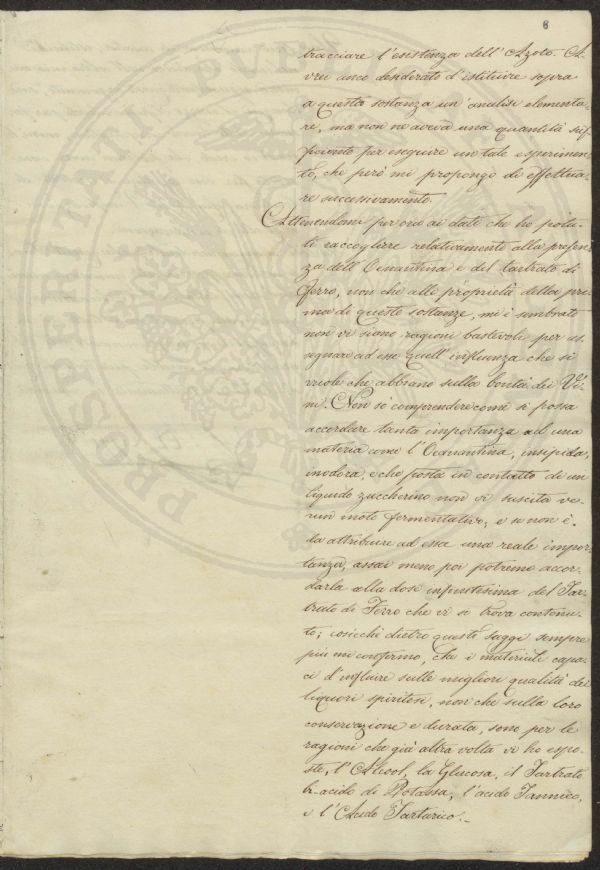 6
tracciare l'esistenza dell'Azoto. A-
vrei anco desiderato d'istituire sopra
a questa sostanza un'analisi elementa-
re, ma non ne aveva una quantità suf-
ficiente per eseguire un tale esperimen-
to, che però mi propongo di effettua-
re successivamente.
Attenendomi per ora ai dati che ho potu-
ti raccogliere relativamente alla presen-
za dell'Oenantina e del tartrato di
Ferro, non che alle proprietà della pri-
ma di queste sostanze, mi è sembrato
non vi siano ragioni bastevoli per as-
segnare ad esse quell'influenza che si
vuole che abbiano sulla bontà dei Vi-
ni. Non so comprendere come si possa
accordare tanta importanza ad una
materia come l'Oenantina, insipida,
inodora, e che posta in contatto di un
liquido zuccherino non vi suscita ve-
run moto fermentativo; e se non è
da attribuire ad essa una reale impor-
tanza, assai meno poi potremo accor-
darla alla dose infinitesima del Tar-
trato di Ferro che vi si trova contenu-
to; cosicchè dietro questi saggi sempre
più mi confermo, che i materiali capa-
ci d'influire sulle migliori qualità dei
liquori spiritosi, non che sulla loro
conservazione e durata, sono per le
ragioni che già altra volta vi ho espo-
ste, l'Alcool, la Glucosa, il Tartrato
b-acido di Potassa, l'acido Tannico,
e l'Acido Tartarico.
PROSPERITAT PUBL